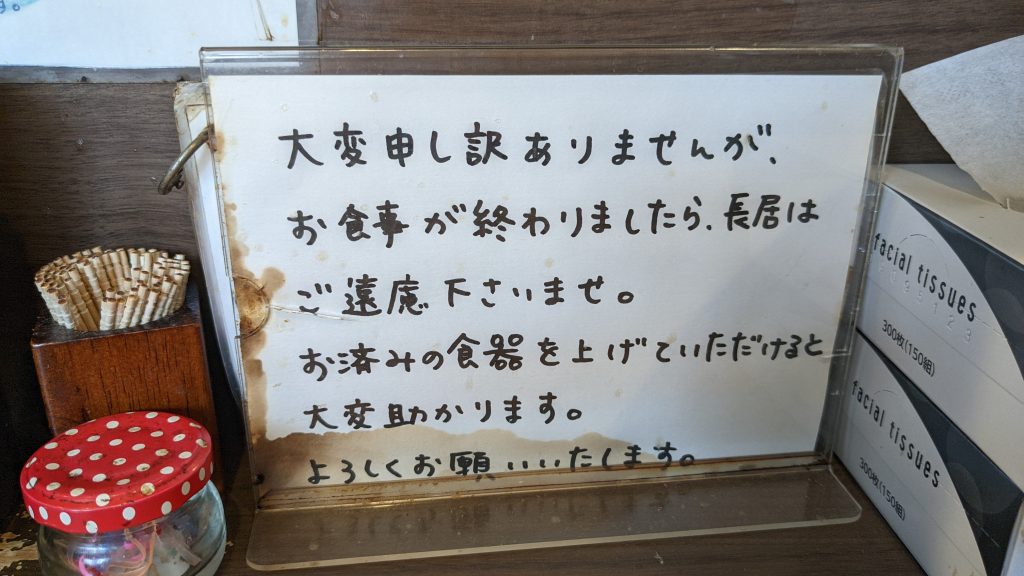 大変申し訳ありませんが、
お食事が終わりましたら、長居は
ご遠慮下さいませ。
お済みの食器を上げていただけると
大変助かります。
よろしくお願いいたします。
facial tissues
300枚(150組)
facial tissues
300枚(150組)